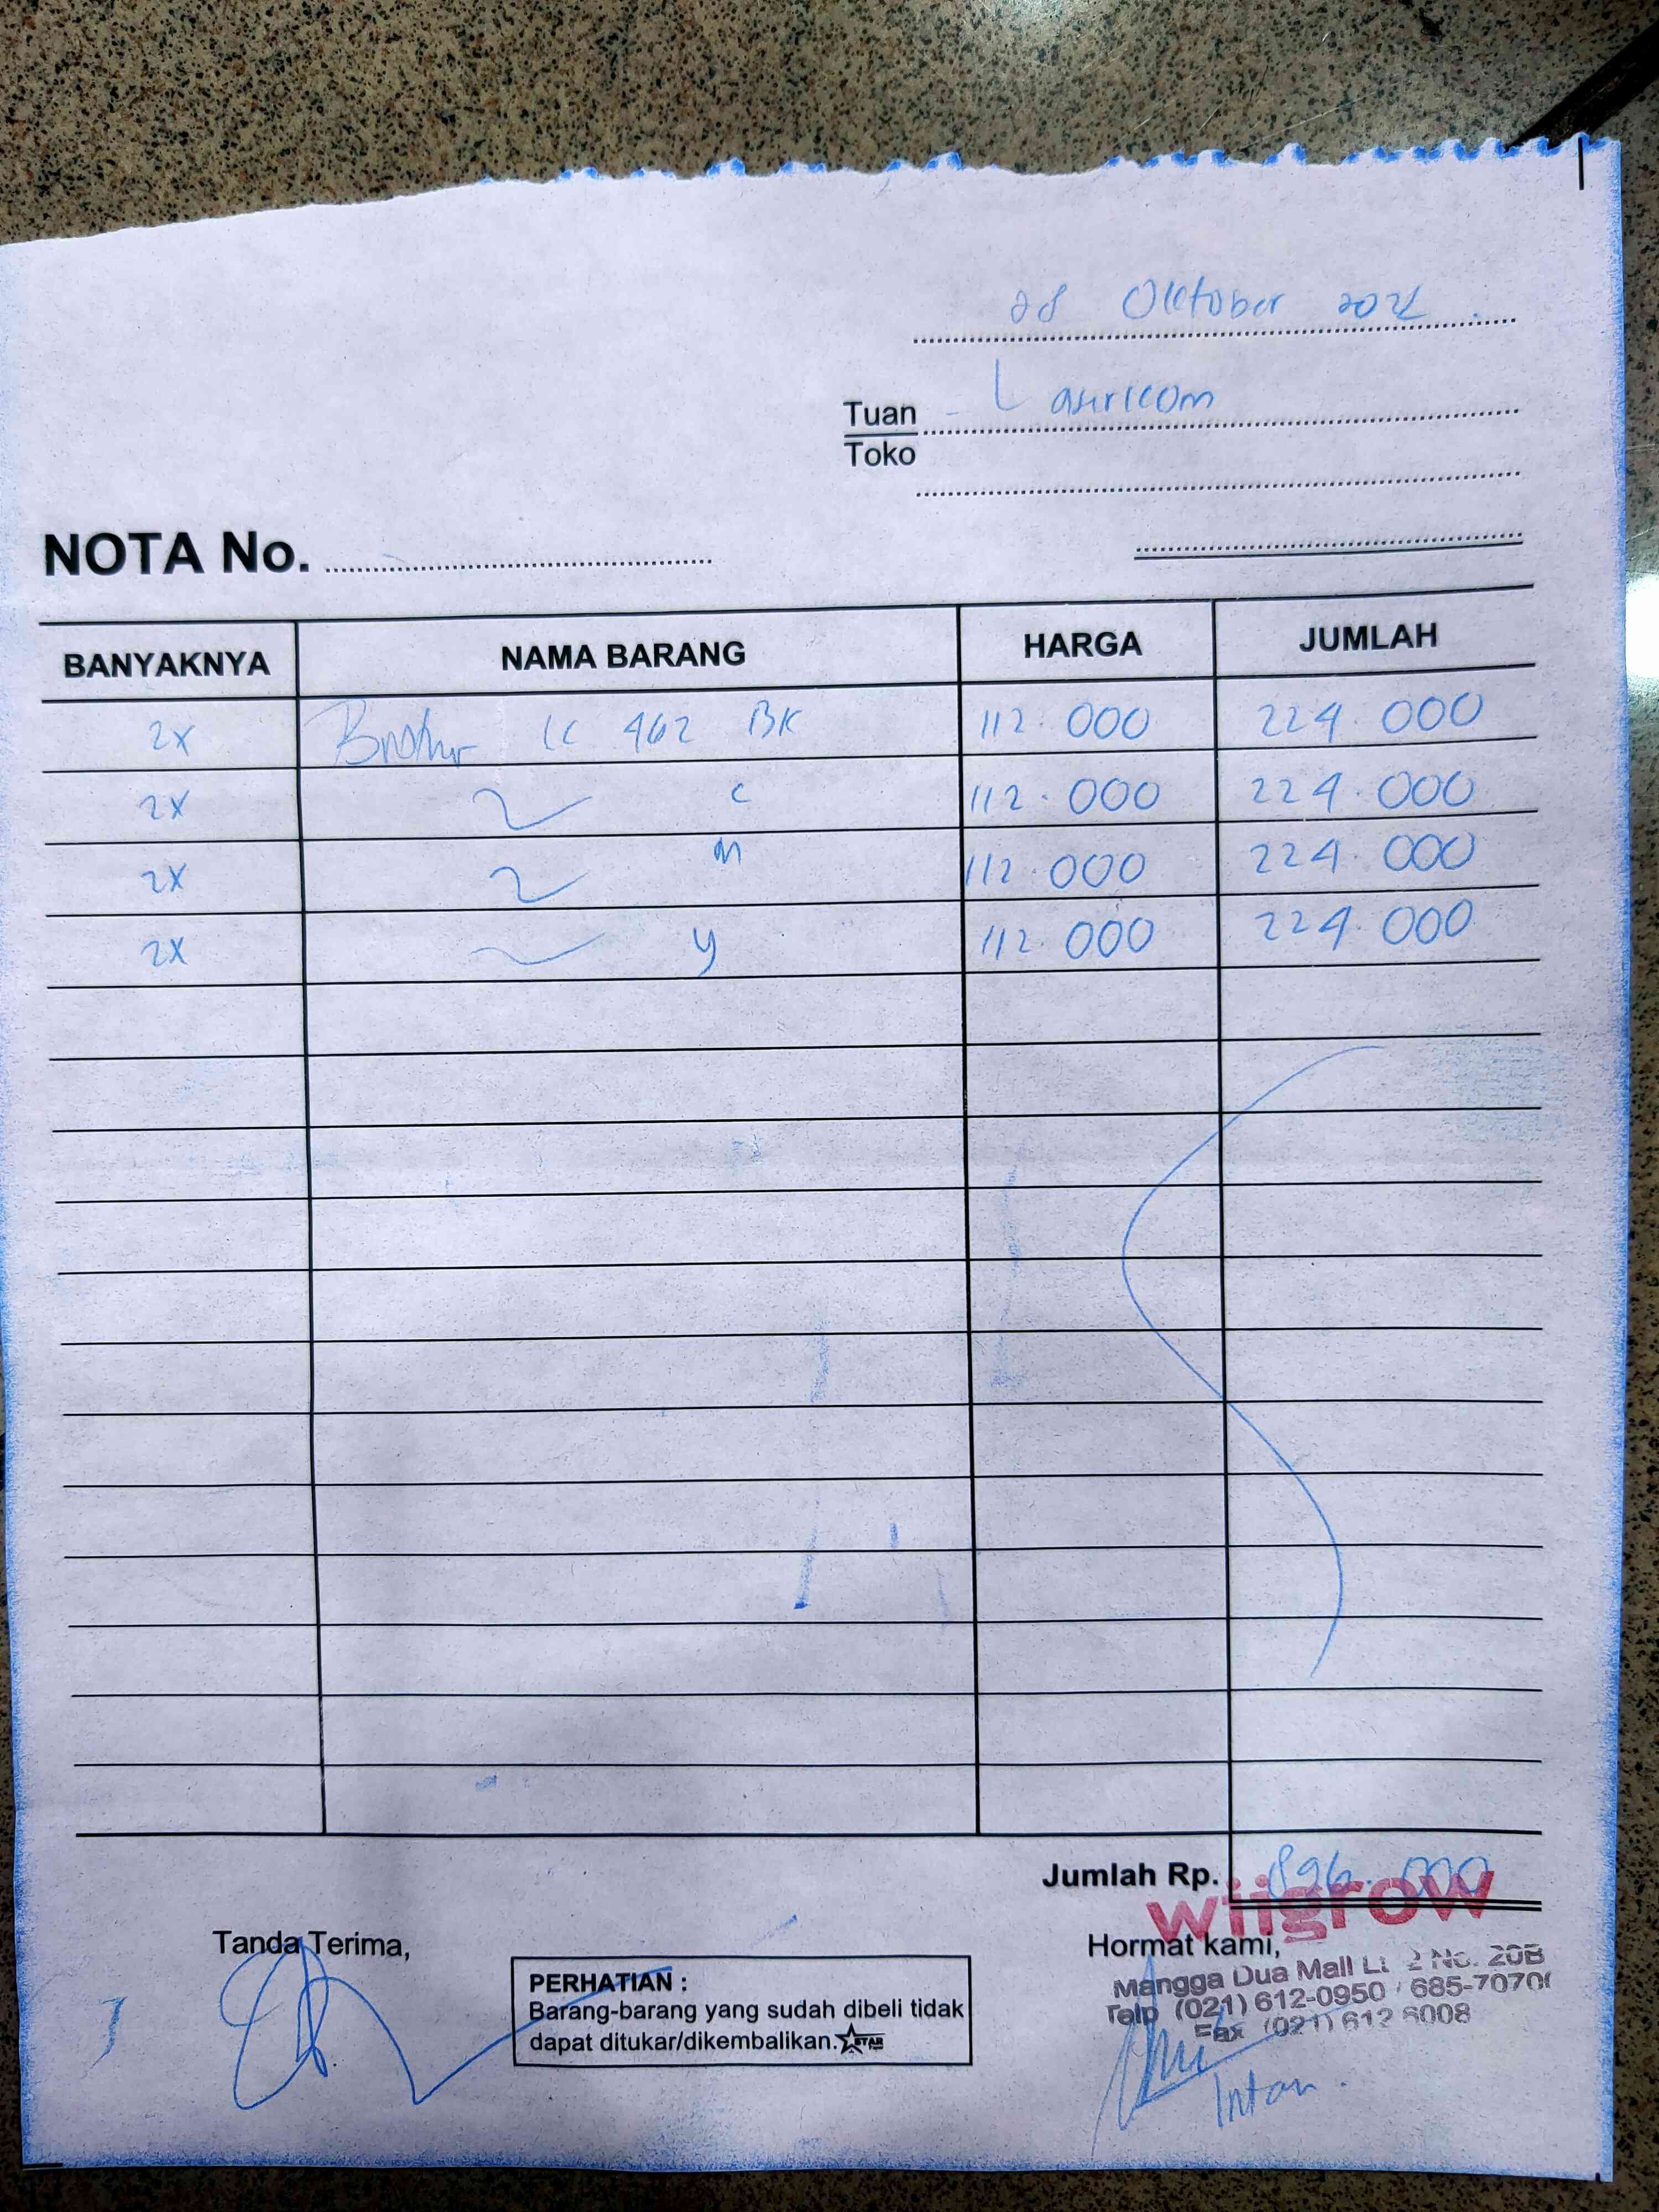 28 Oktober
Tuan Lasercom
Toko
NOTA No.
BANYAKNYA NAMA BARANG HARGA JUMLAH
2x Brother LC 462 BK 112.000 224.000
2x C 112.000 224.000
2x M 112.000 224.000
2x Y 112.000 224.000
Jumlah Rp. 896.000
wiigrow
Tanda Terima,
Hormat kami,
Mangga Dua Mall Lt 2 No. 20B
Telp (021) 612-0950 / 685-7070
Fax (021) 612 6008
PERHATIAN :
Barang-barang yang sudah dibeli tidak
dapat ditukar/dikembalikan. STAR
Intan.